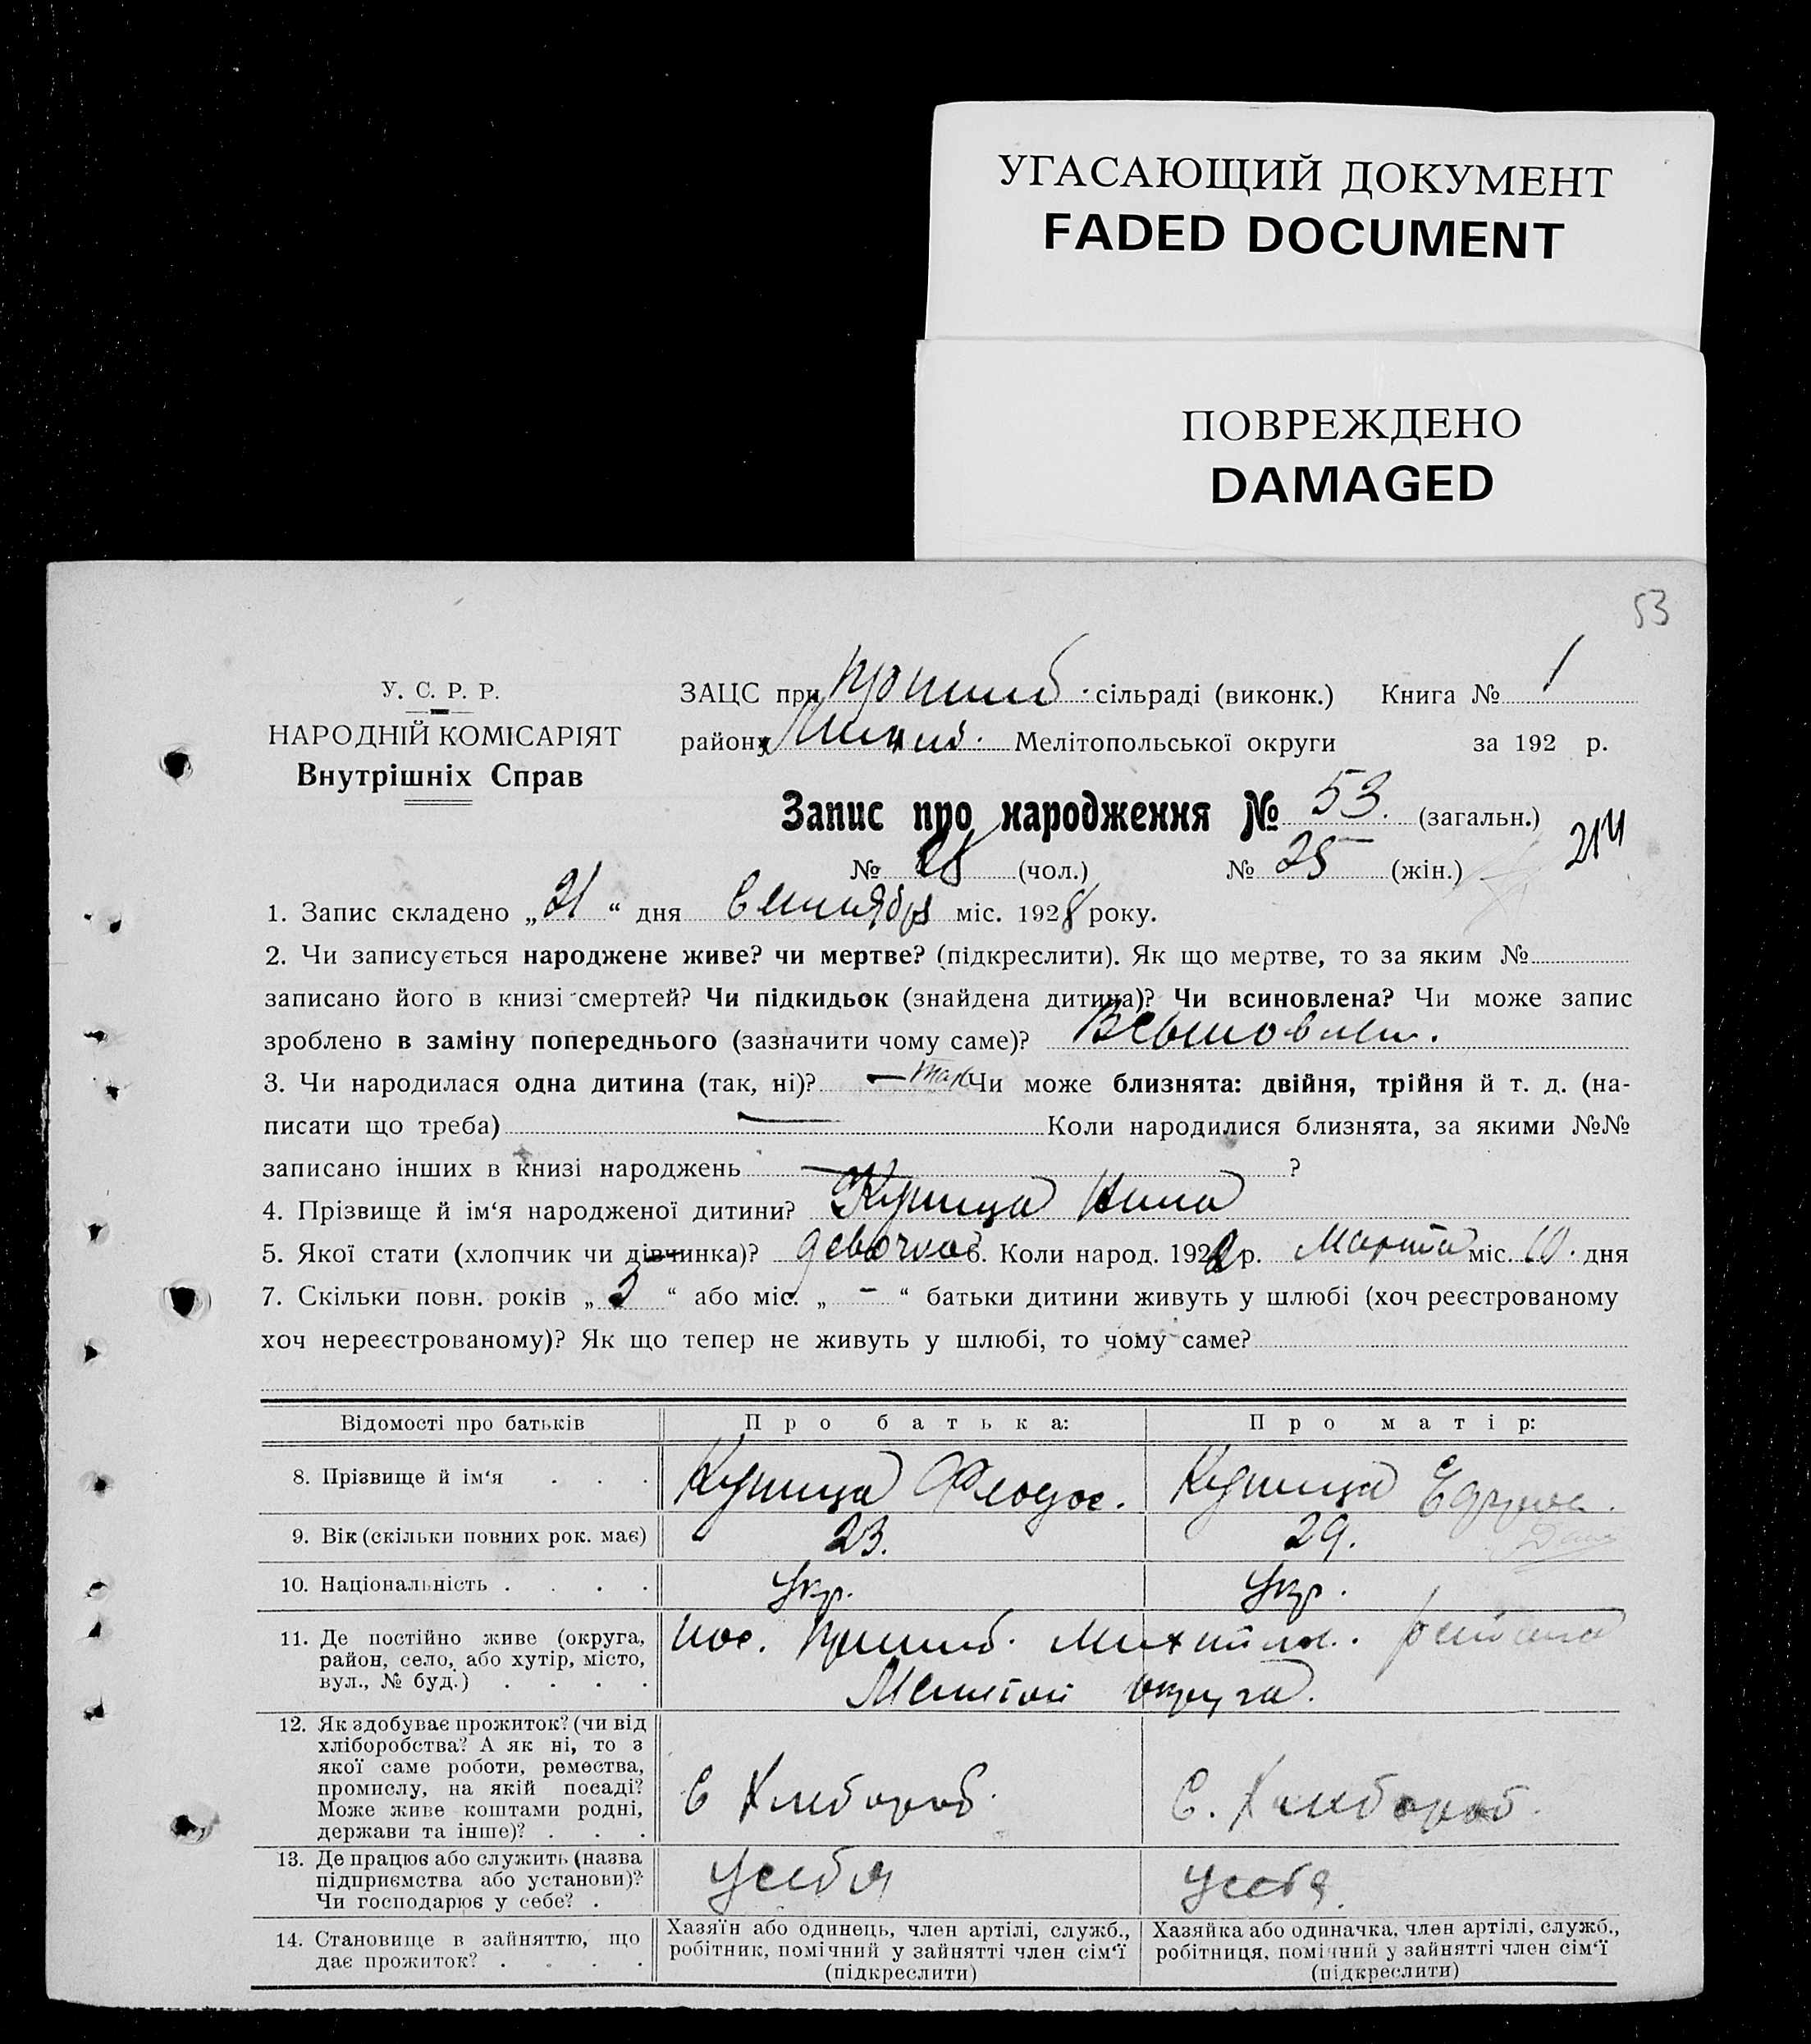 УГАСАЮЩИЙ ДОКУМЕНТ
FADED DOCUMENT
ПОВРЕЖДЕНО
DAMAGED
53
У. С. Р. Р.
НАРОДНІЙ КОМІСАРІЯТ
Внутрішніх Справ
ЗАЦС при сільраді (виконк.) Книга № 1
району Мелітопольської округи за 192 р.
Запис про народження № 53. (загальн.)
214
№ 28 (чол.) № 25 (жін.)
1. Запис складено „21“ дня Сентября міс. 1928 року.
2. Чи записується народжене живе? чи мертве? (підкреслити). Як що мертве, то за яким №
записано його в книзі смертей? Чи підкидьок (знайдена дитина)? Чи всиновлена? Чи може запис
зроблено в заміну попереднього (зазначити чому саме)?
3. Чи народилася одна дитина (так, ні)? — так Чи може близнята: двійня, трійня й т. д. (на-
писати що треба) — Коли народилися близнята, за якими №№
записано інших в книзі народжень — ?
4. Прізвище й ім‘я народженої дитини? Куница Нина
5. Якої стати (хлопчик чи дівчинка)? девочка 6. Коли народ. 192 р. Марта міс. 10. дня
7. Скільки повн. років „3“ або міс. „ - “ батьки дитини живуть у шлюбі (хоч реєстрованому
хоч нереєстрованому)? Як що тепер не живуть у шлюбі, то чому саме?
Відомості про батьків Про батька: Про матір:
8. Прізвище й ім‘я . . . Куница Феодос. Куница
9. Вік (скільки повних рок. має) 23. 29.
10. Національність . . . . Укр. Укр.
11. Де постійно живе (округа,
район, село, або хутір, місто,
вул., № буд.) . . . .
пос. Пришиб. Михайлов. района
Мелитоп округа.
12. Як здобуває прожиток? (чи від
хліборобства? А як ні, то з
якої саме роботи, ремества,
промислу, на якій посаді?
Може живе коштами родні,
держави та інше)? . . .
С Хлебороб. С. Хлебороб.
13. Де працює або служить (назва
підприємства або установи)?
Чи господарює у себе? .
У себя У себя.
14. Становище в зайняттю, що
дає прожиток? . . . .
Хазяїн або одинець, член артілі, служб.,
робітник, помічний у зайнятті член сім‘ї
(підкреслити)
Хазяйка або одиначка, член артілі, служб.,
робітниця, помічний у зайнятті член сім‘ї
(підкреслити)